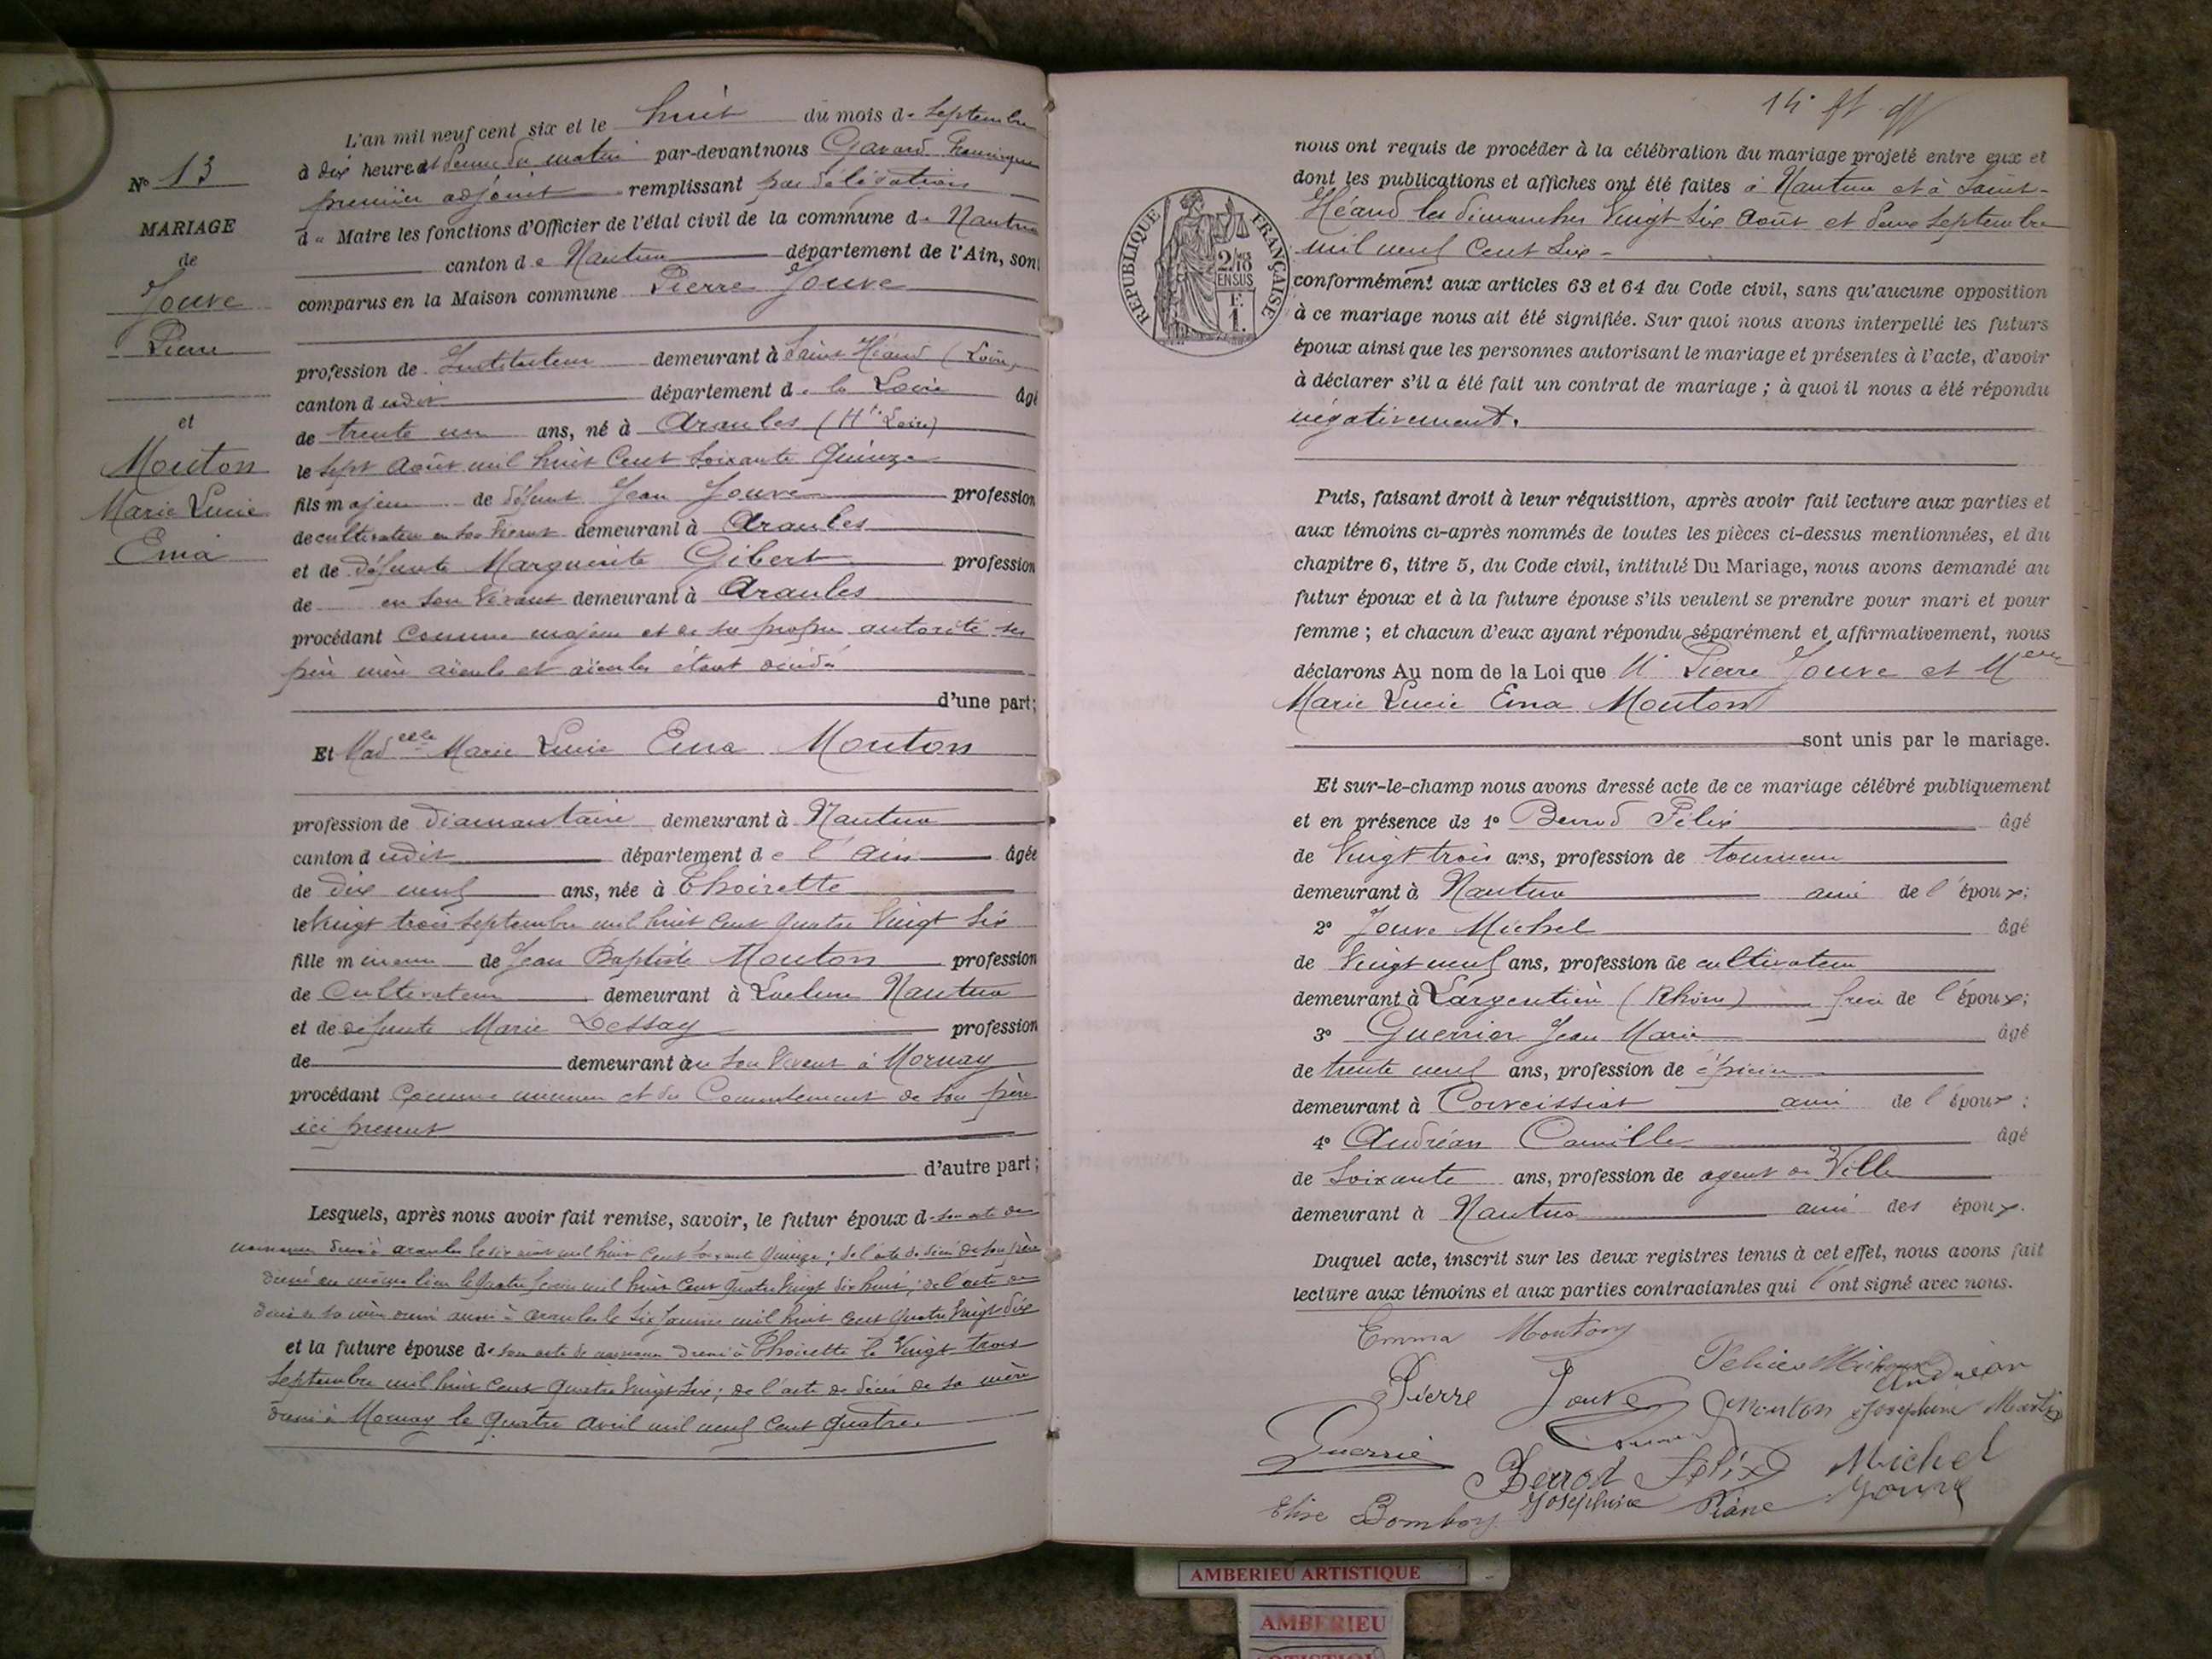 L'an mil neuf cent six et le huit du mois de Septembre
à dix heures et demie du matin par-devant nous Gavard
premier adjoint remplissant par délégation
du Maire les fonctions d'Officier de l'état civil de la commune de Nantua
canton de Nantua département de l'Ain, sont
comparus en la Maison commune Pierre Jouve
N° 13
MARIAGE
de
Jouve
Pierre
et
Mouton
Marie Lucie
Ema
profession de Instituteur demeurant à Saint Héand (Loire)
canton dudit département de la Loire âgé
de trente un ans, né à Araules (Hte Loire)
le sept Août mil huit Cent Soixante Quinze
fils majeur de défunt Jean Jouve profession
de cultivateur en son vivant demeurant à Araules
et de défunte Marguerite Gibert profession
de en son vivant demeurant à Araules
procédant comme majeur et de sa propre autorité ses
père mère aïeuls et aïeules étant décédés
d'une part;
Et Madelle Marie Lucie Ema Mouton
profession de diamantaire demeurant à Nantua
canton dudit département de l'Ain âgée
de dix neuf ans, née à Thoirette
le Vingt trois septembre mil huit cent quatre Vingt Six
fille mineure de Jean Baptiste Mouton profession
de Cultivateur demeurant à Nantua
et de défunte Marie Dessay profession
de demeurant en son vivant à Mornay
procédant comme mineure et du Consentement de son père
ici présent
d'autre part;
Lesquels, après nous avoir fait remise, savoir, le futur époux de son acte de
naissance dressé à Araules le six août mil huit cent soixante quinze; de l'acte de décès de son père
dressé au même lieu le quatre mil huit cent quatre vingt dix huit; de l'acte de
décès de sa mère dressé aussi à Araules le six janvier mil huit cent quatre vingt dix
et la future épouse de son acte de naissance dressé à Thoirette le Vingt trois
Septembre mil huit cent quatre vingt six; de l'acte de décès de sa mère
dressé à Mornay le quatre avril mil neuf cent quatre.
14
nous ont requis de procéder à la célébration du mariage projeté entre eux et
dont les publications et affiches ont été faites à Nantua et à Saint-
Héand les dimanches Vingt Six Août et deux Septembre
mil neuf cent six -
conformément aux articles 63 et 64 du Code civil, sans qu'aucune opposition
à ce mariage nous ait été signifiée. Sur quoi nous avons interpellé les futurs
époux ainsi que les personnes autorisant le mariage et présentes à l'acte, d'avoir
à déclarer s'il a été fait un contrat de mariage; à quoi il nous a été répondu
négativement.
RÉPUBLIQUE FRANÇAISE
2/10 EN SUS
F. 1.
Puis, faisant droit à leur réquisition, après avoir fait lecture aux parties et
aux témoins ci-après nommés de toutes les pièces ci-dessus mentionnées, et du
chapitre 6, titre 5, du Code civil, intitulé Du Mariage, nous avons demandé au
futur époux et à la future épouse s'ils veulent se prendre pour mari et pour
femme; et chacun d'eux ayant répondu séparément et affirmativement, nous
déclarons Au nom de la Loi que Mr Pierre Jouve et Melle
Marie Lucie Ema Mouton
sont unis par le mariage.
Et sur-le-champ nous avons dressé acte de ce mariage célébré publiquement
et en présence de 1° Berrod Félix âgé
de Vingt trois ans, profession de tourneur
demeurant à Nantua ami de l'époux;
2° Jouve Michel âgé
de Vingt neuf ans, profession de cultivateur
demeurant à Largentière (Rhône) frère de l'époux;
3° Guerrier Jean Marie âgé
de trente neuf ans, profession de épicier
demeurant à Corveissiat ami de l'époux;
4° Andréan Camille âgé
de Soixante ans, profession de agent de Ville
demeurant à Nantua ami des époux.
Duquel acte, inscrit sur les deux registres tenus à cet effet, nous avons fait
lecture aux témoins et aux parties contractantes qui l'ont signé avec nous.
Emma Mouton
Andréan
Pierre Jouve Mouton Joséphine
Guerrié Berrod Félix Michel
Jouve
Elise Bomboy Joséphine Piane
AMBERIEU ARTISTIQUE
AMBERIEU
ARTISTIQUE